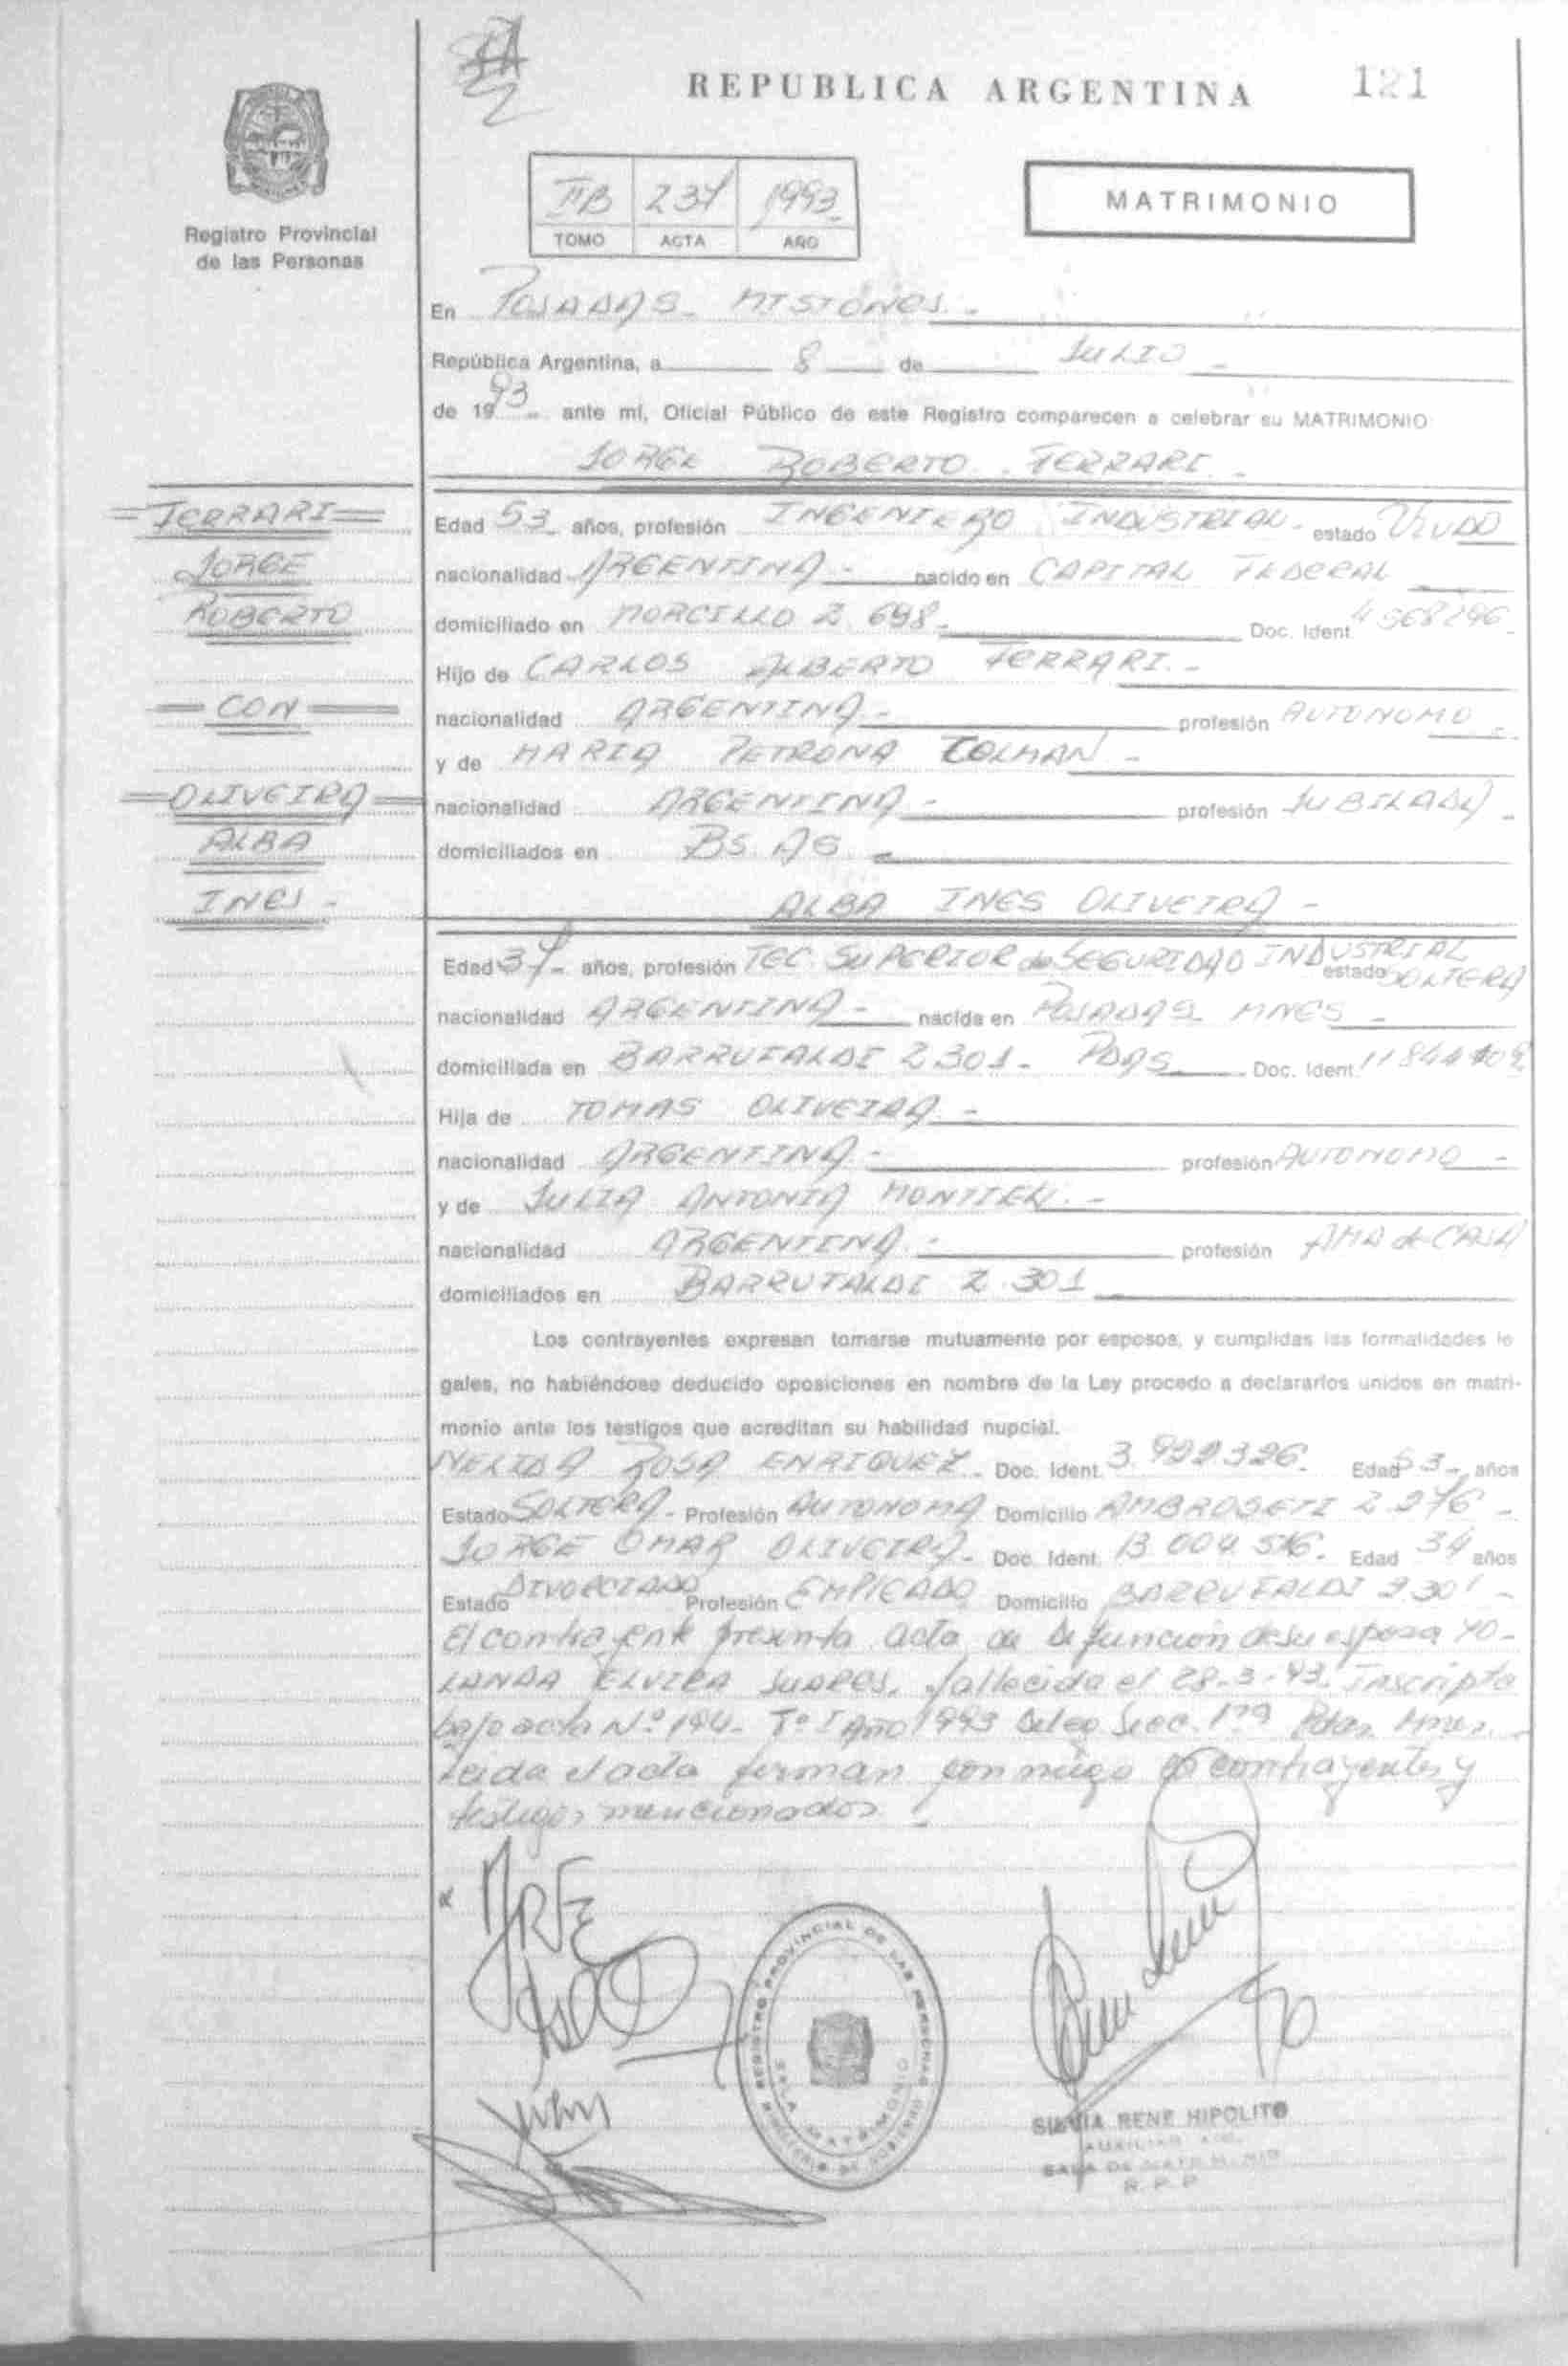 REPUBLICA ARGENTINA
121
Registro Provincial
de las Personas
IIB 237 1993
TOMO ACTA AÑO
MATRIMONIO
En POSADAS - MISIONES. -
República Argentina, a 8 de JULIO -
de 1993 - ante mí, Oficial Público de este Registro comparecen a celebrar su MATRIMONIO
JORGE ROBERTO FERRARI. -
FERRARI
JORGE
ROBERTO
CON
OLIVEIRA
ALBA
INES -
Edad 53 años, profesión INGENIERO INDUSTRIAL - estado VIUDO
nacionalidad ARGENTINA - nacido en CAPITAL FEDERAL
domiciliado en MORCILLO 2.698 - Doc. Ident. 4568296
Hijo de CARLOS ALBERTO FERRARI. -
nacionalidad ARGENTINA - profesión AUTONOMO -
y de MARIA PETRONA COLMAN -
nacionalidad ARGENTINA - profesión JUBILADA -
domiciliados en BS. AS -
ALBA INES OLIVEIRA -
Edad 37 - años, profesión TEC. SUPERIOR de SEGURIDAD INDUSTRIAL estado SOLTERA
nacionalidad ARGENTINA - nacida en POSADAS MNES -
domiciliada en BARRUFALDI 2301 - PDAS Doc. Ident. 11844
Hija de TOMAS OLIVEIRA -
nacionalidad ARGENTINA - profesión AUTONOMO -
y de JULIA ANTONIA MONTIEL. -
nacionalidad ARGENTINA. - profesión AMA de CASA
domiciliados en BARRUFALDI 2.301
Los contrayentes expresan tomarse mutuamente por esposos, y cumplidas las formalidades le
gales, no habiéndose deducido oposiciones en nombre de la Ley procedo a declararlos unidos en matri-
monio ante los testigos que acreditan su habilidad nupcial.
NELIDA ROSA ENRIQUEZ - Doc. Ident. 3.922326. Edad 53 - años
Estado SOLTERA - Profesión AUTONOMA Domicilio AMBROSETI 2.276 -
JORGE OMAR OLIVEIRA - Doc. Ident. 13.004.516. Edad 34 años
Estado DIVORCIADO Profesión EMPLEADO Domicilio BARRUFALDI 2301 -
El contrayente presenta acta de defunción de su esposa YO-
LANDA ELVIRA SUARES, fallecida el 28-3-93. Inscripta
bajo acta Nº 194 - Tº I Año 1993 Secc. 1ra Pdas. Mnes. -
Leida el acta firman conmigo contrayentes y
testigos mencionados. -
REGISTRO PROVINCIAL DE LAS PERSONAS
SALA MATRIMONIO
MINISTERIO DE GOBIERNO
SILVIA RENE HIPOLITO
AUXILIAR
SALA DE MATRIMONIO
R. P. P.